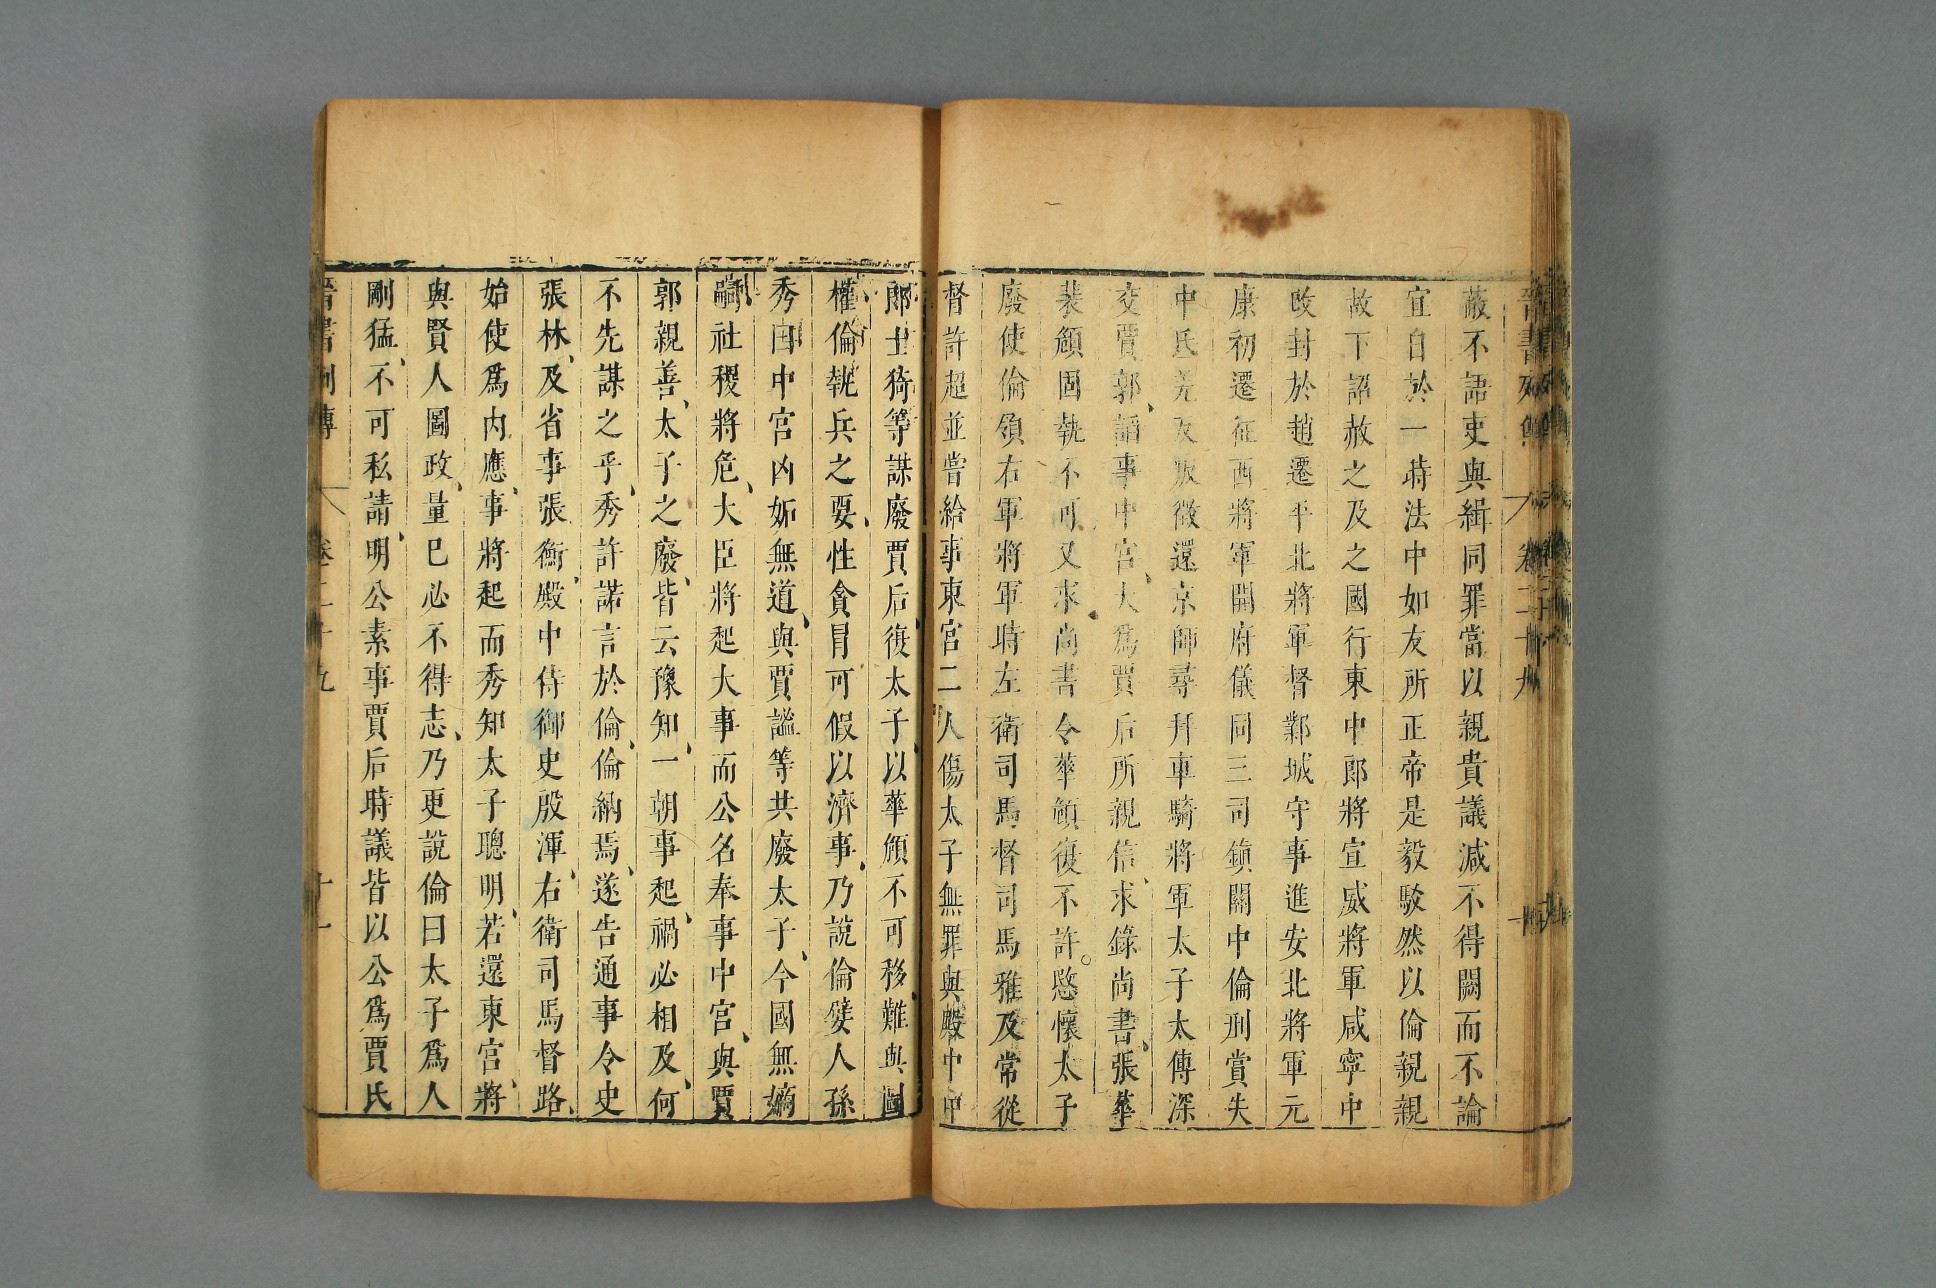 晉書列傳 卷二十九 十
蔽不語吏與緝同罪當以親貴議減不得闕而不論
宜自於一時法中如友所正帝是毅駁然以倫親親
故下詔赦之及之國行東中郎將宣威將軍咸寧中
改封於趙遷平北將軍督鄴城守事進安北將軍元
康初遷征西將軍開府儀同三司鎮關中倫刑賞失
中氐羌反叛徵還京師尋拜車騎將軍太子太傅深
交賈郭謟事中宮大為賈后所親信求錄尚書張華
裴頠固執不可又求尚書令華頠復不許愍懷太子
廢使倫領右軍將軍時左衛司馬督司馬雅及常從
督許超並嘗給事東宮二人傷太子無罪與殿中中
郎士猗等謀廢賈后復太子以華頠不可移難與圖
權倫執兵之要性貪冒可假以濟事乃說倫嬖人孫
秀曰中宮凶妬無道與賈謐等共廢太子今國無嫡
嗣社稷將危大臣將起大事而公名奉事中宮與賈
郭親善太子之廢皆云豫知一朝事起禍必相及何
不先謀之乎秀許諾言於倫倫納焉遂告通事令史
張林及省事張衡殿中侍御史殷渾右衛司馬督路
始使爲內應事將起而秀知太子聰明若還東宮將
與賢人圖政量己必不得志乃更說倫曰太子爲人
剛猛不可私請明公素事賈后時議皆以公爲賈氏
晉書列傳 卷二十九 十一